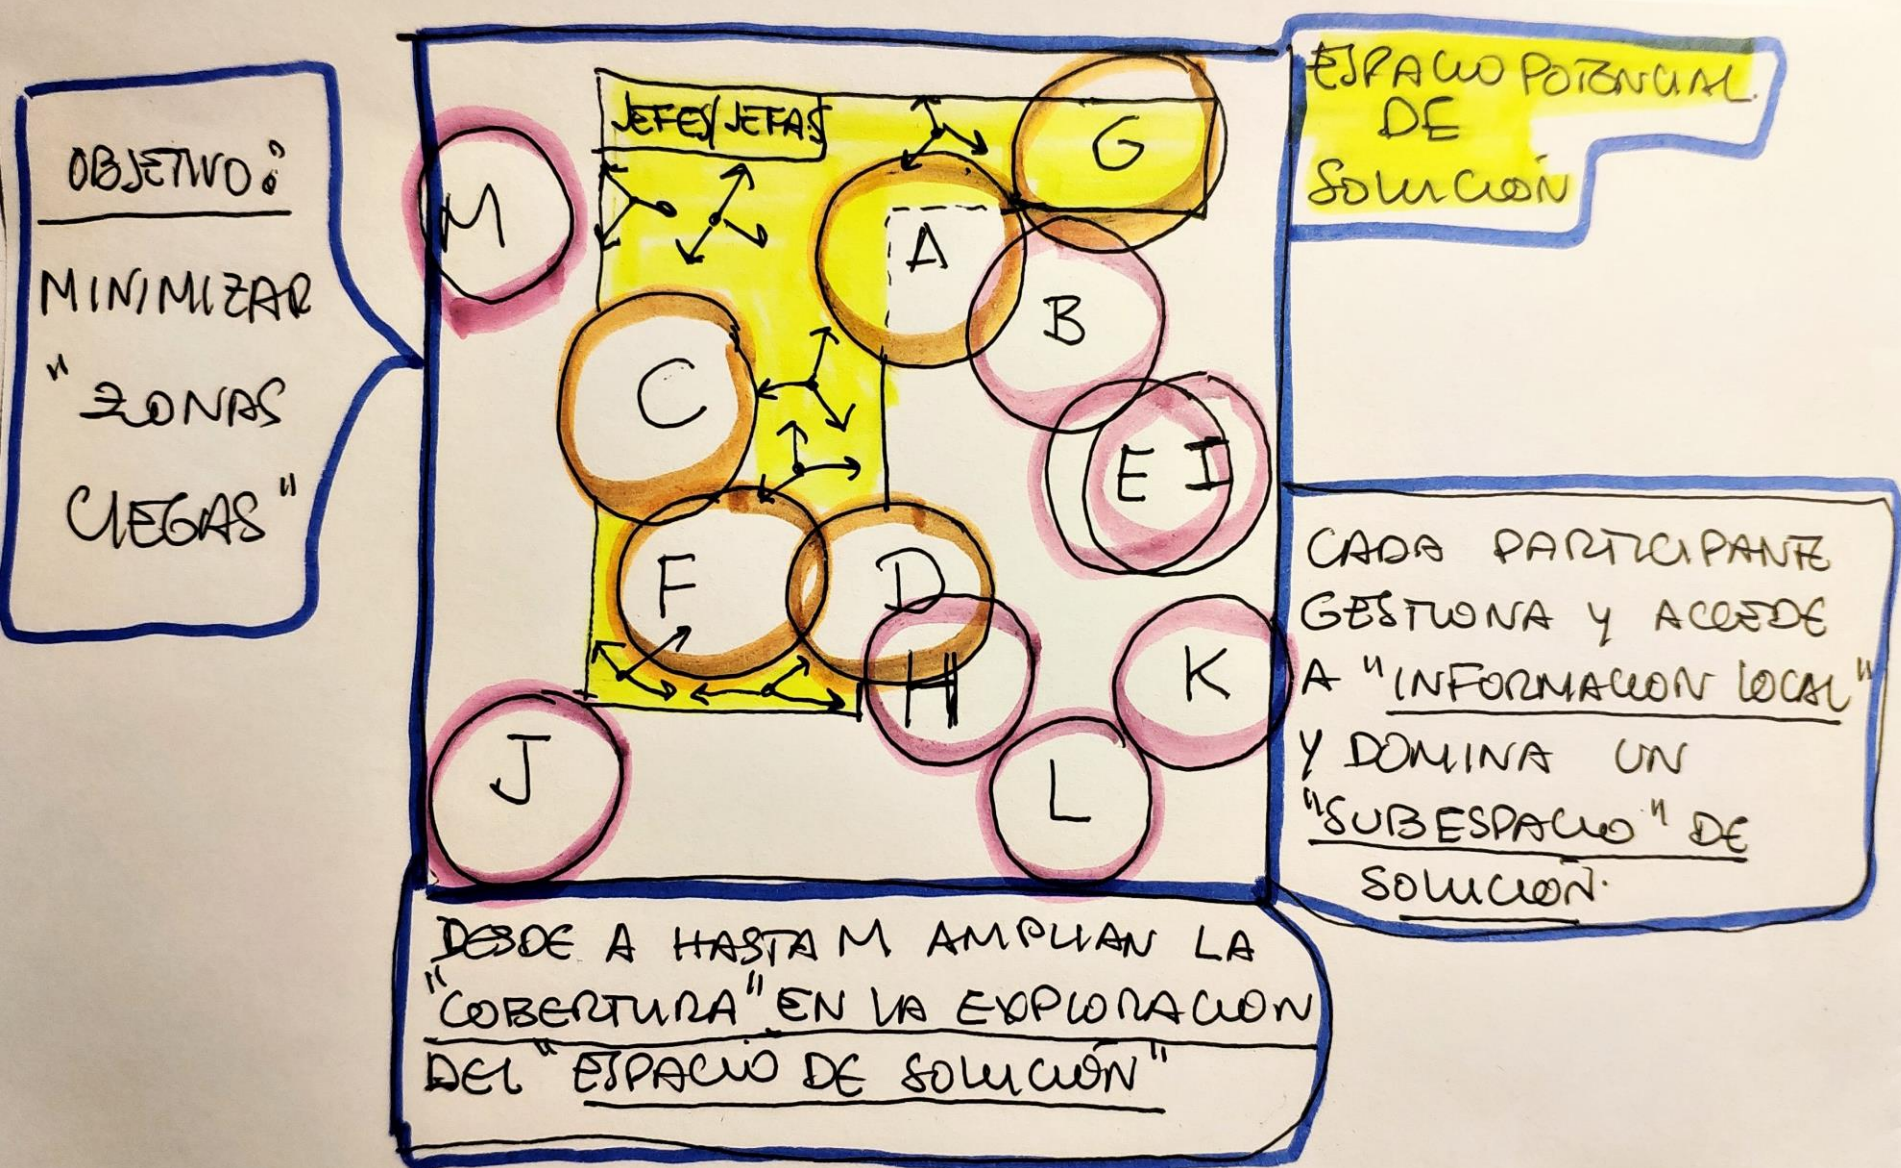 OBJETIVO:
MINIMIZAR
"ZONAS
CIEGAS"
JEFES/JEFAS
G
M
A
B
C
E I
F
D
H
K
J
L
ESPACIO POTENCIAL
DE
SOLUCIÓN
CADA PARTICIPANTE
GESTIONA Y ACCEDE
A "INFORMACION LOCAL"
Y DOMINA UN
"SUBESPACIO" DE
SOLUCIÓN.
DESDE A HASTA M AMPLIAN LA
"COBERTURA" EN LA EXPLORACION
DEL "ESPACIO DE SOLUCIÓN"